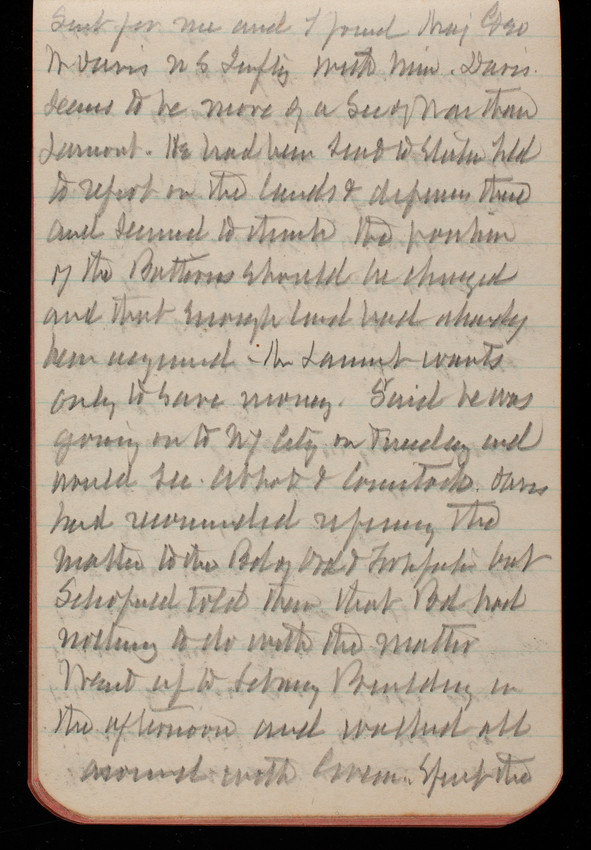 Sent for me and I found Maj Geo
W Davis U S Infty with him. Davis
seems to be more of a Sec of War than
Lamont. He had been sent to
to report on the lands & defenses there
and seemed to think the position
of the Batteries should be changed
and that enough land had already
been acquired - Mr Lamont wants
only to save money. Said he was
going on to NY City on Tuesday and
would see Abbot & Comstock. Davis
had recommended referring the
matter to the Bd of Ord & Fortification but
Schofield told them that Bd had
nothing to do with the matter
Went up to Library Building in
the afternoon and walked all
around with Green. Spent the